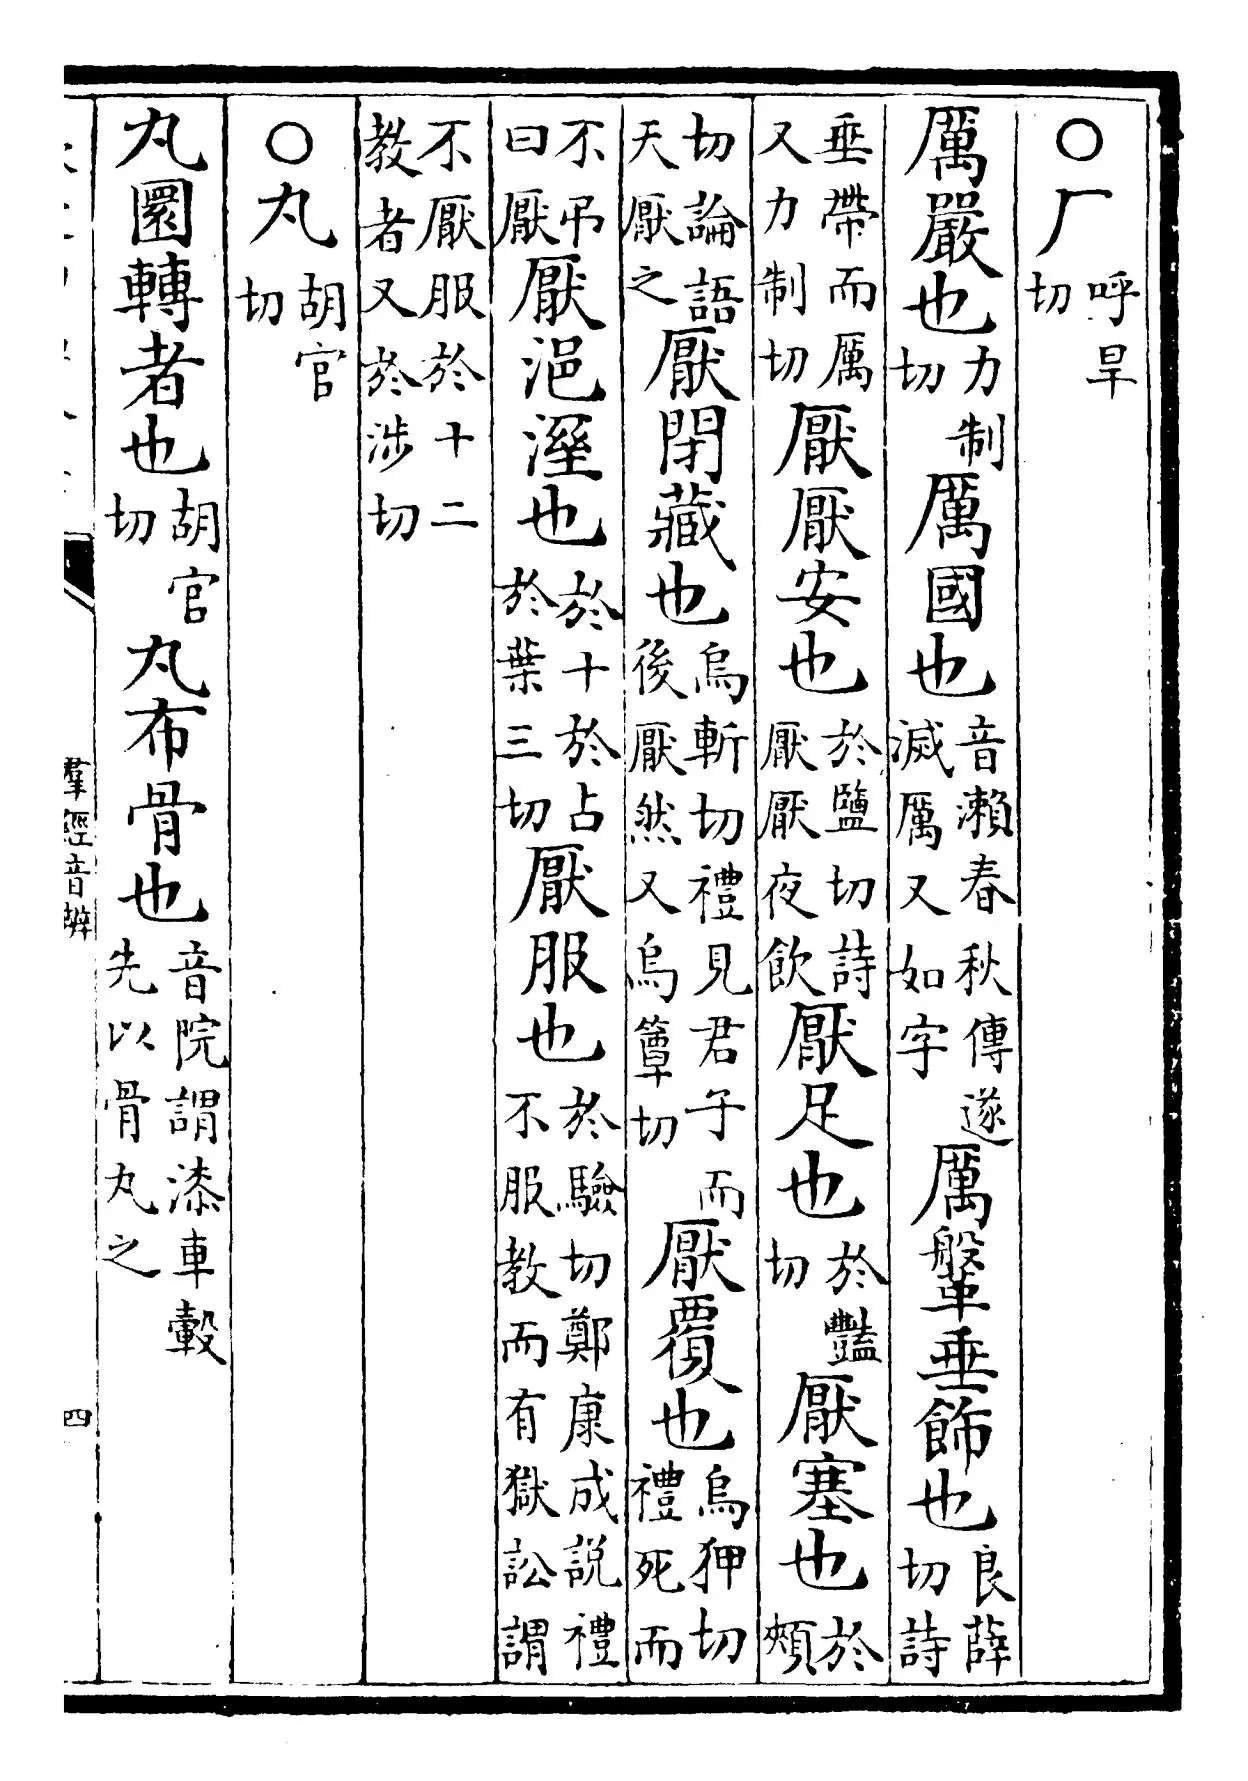 ○厂呼旱切
厲嚴也力制切厲國也音瀨春秋傳遂滅厲又如字厲鞶垂飾也良薛切詩
垂帶而厲又力制切厭厭安也於鹽切詩厭厭夜飲厭足也於豔切厭塞也於頰
切論語天厭之厭閉藏也烏斬切禮見君子而後厭然又烏簟切厭覆也烏狎切禮死而
不弔曰厭厭浥溼也於十於占於葉三切厭服也於驗切鄭康成說禮不服教而有獄訟謂
不厭服於十二教者又於涉切
○丸胡官切
丸圜轉者也胡官切丸布骨也音院謂漆車轂先以骨丸之
羣經音辨
四